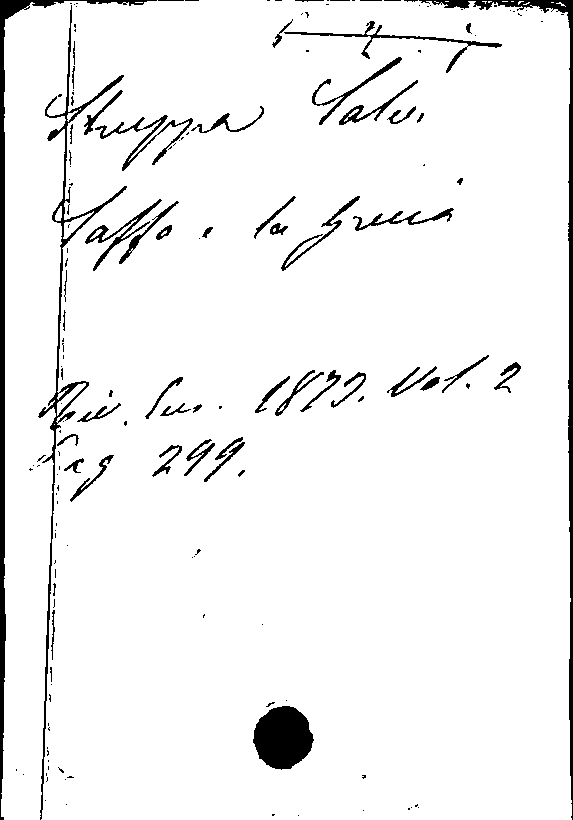 Struppa Salv.
Saffo e la Grecia
Riv. Eur. 1873. Vol. 2
Pag 299.